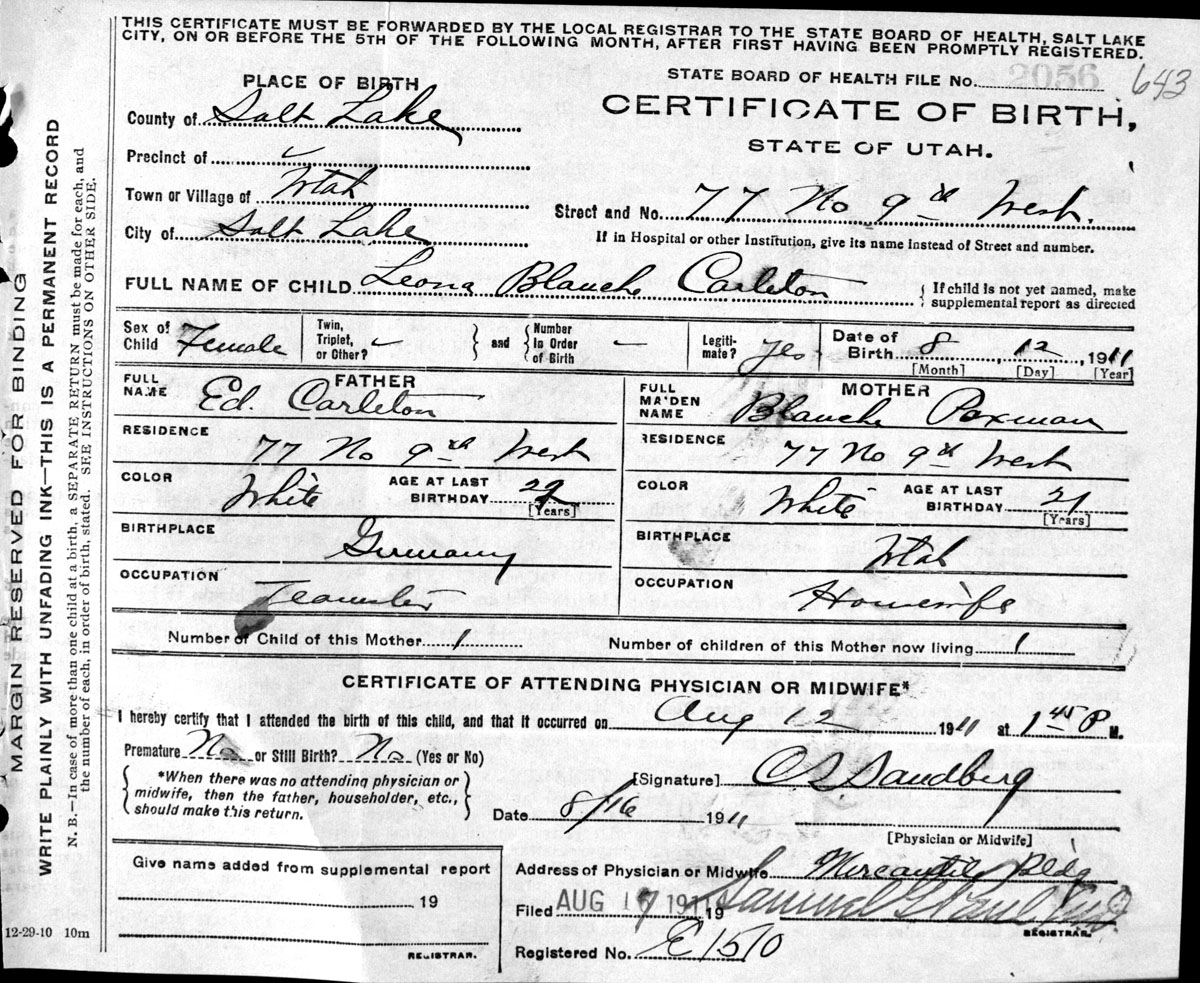 THIS CERTIFICATE MUST BE FORWARDED BY THE LOCAL REGISTRAR TO THE STATE BOARD OF HEALTH, SALT LAKE
CITY, ON OR BEFORE THE 5TH OF THE FOLLOWING MONTH, AFTER FIRST HAVING BEEN PROMPTLY REGISTERED.
STATE BOARD OF HEALTH FILE No. 2056 643
PLACE OF BIRTH
CERTIFICATE OF BIRTH,
STATE OF UTAH.
County of Salt Lake
Precinct of
Town or Village of Utah
City of Salt Lake
Street and No. 77 No 9th West.
If in Hospital or other Institution, give its name instead of Street and number.
FULL NAME OF CHILD Leona Blanche Carleton { If child is not yet named, make
supplemental report as directed
Sex of Child Female
Twin, Triplet, or Other? –
and
Number in Order of Birth –
Legiti-mate? yes
Date of Birth 8, 12, 1911
[Month] [Day] [Year]
FATHER
FULL NAME Ed. Carleton
RESIDENCE 77 No 9th West
COLOR White
AGE AT LAST BIRTHDAY 22 [Years]
BIRTHPLACE Germany
OCCUPATION Teamster
MOTHER
FULL MAIDEN NAME Blanche Paxman
RESIDENCE 77 No 9th West
COLOR White
AGE AT LAST BIRTHDAY 21 [Years]
BIRTHPLACE Utah
OCCUPATION Housewife
Number of Child of this Mother 1
Number of children of this Mother now living 1
CERTIFICATE OF ATTENDING PHYSICIAN OR MIDWIFE*
I hereby certify that I attended the birth of this child, and that it occurred on Aug 12 1911 at 1 45 P M.
Premature No or Still Birth? No (Yes or No)
*When there was no attending physician or
midwife, then the father, householder, etc.,
should make this return.
[Signature] C Sandberg
Date 8/16 1911
[Physician or Midwife]
Give name added from supplemental report
19
REGISTRAR.
Address of Physician or Midwife Mercantile Bldg
Filed AUG 17 1911 19 Samuel G Paul
REGISTRAR.
Registered No. E1510
12-29-10 10m
MARGIN RESERVED FOR BINDING
WRITE PLAINLY WITH UNFADING INK—THIS IS A PERMANENT RECORD
N. B.—In case of more than one child at a birth, a SEPARATE RETURN must be made for each, and
the number of each, in order of birth, stated. SEE INSTRUCTIONS ON OTHER SIDE.